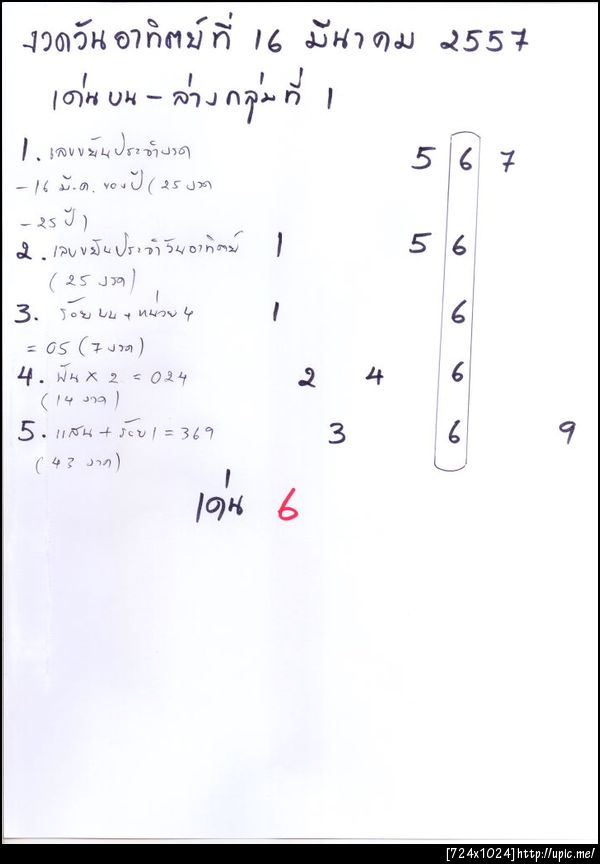 งวดวันอาทิตย์ที่ 16 มีนาคม 2557
เด่นบน - ล่างกลุ่มที่ 1
1. เลขขยันประจำงวด 5 6 7
- 16 มี.ค. ของปี (25 งวด
- 25 ปี)
2. เลขขยันประจำวันอาทิตย์ 1 5 6
(25 งวด)
3. ร้อยบน + หน่วย 4 1 6
= 05 (7 งวด)
4. พัน x 2 = 024 2 4 6
(14 งวด)
5. แสน + ร้อย 1 = 369 3 6 9
(43 งวด)
เด่น 6
[724x1024]http://upic.me/